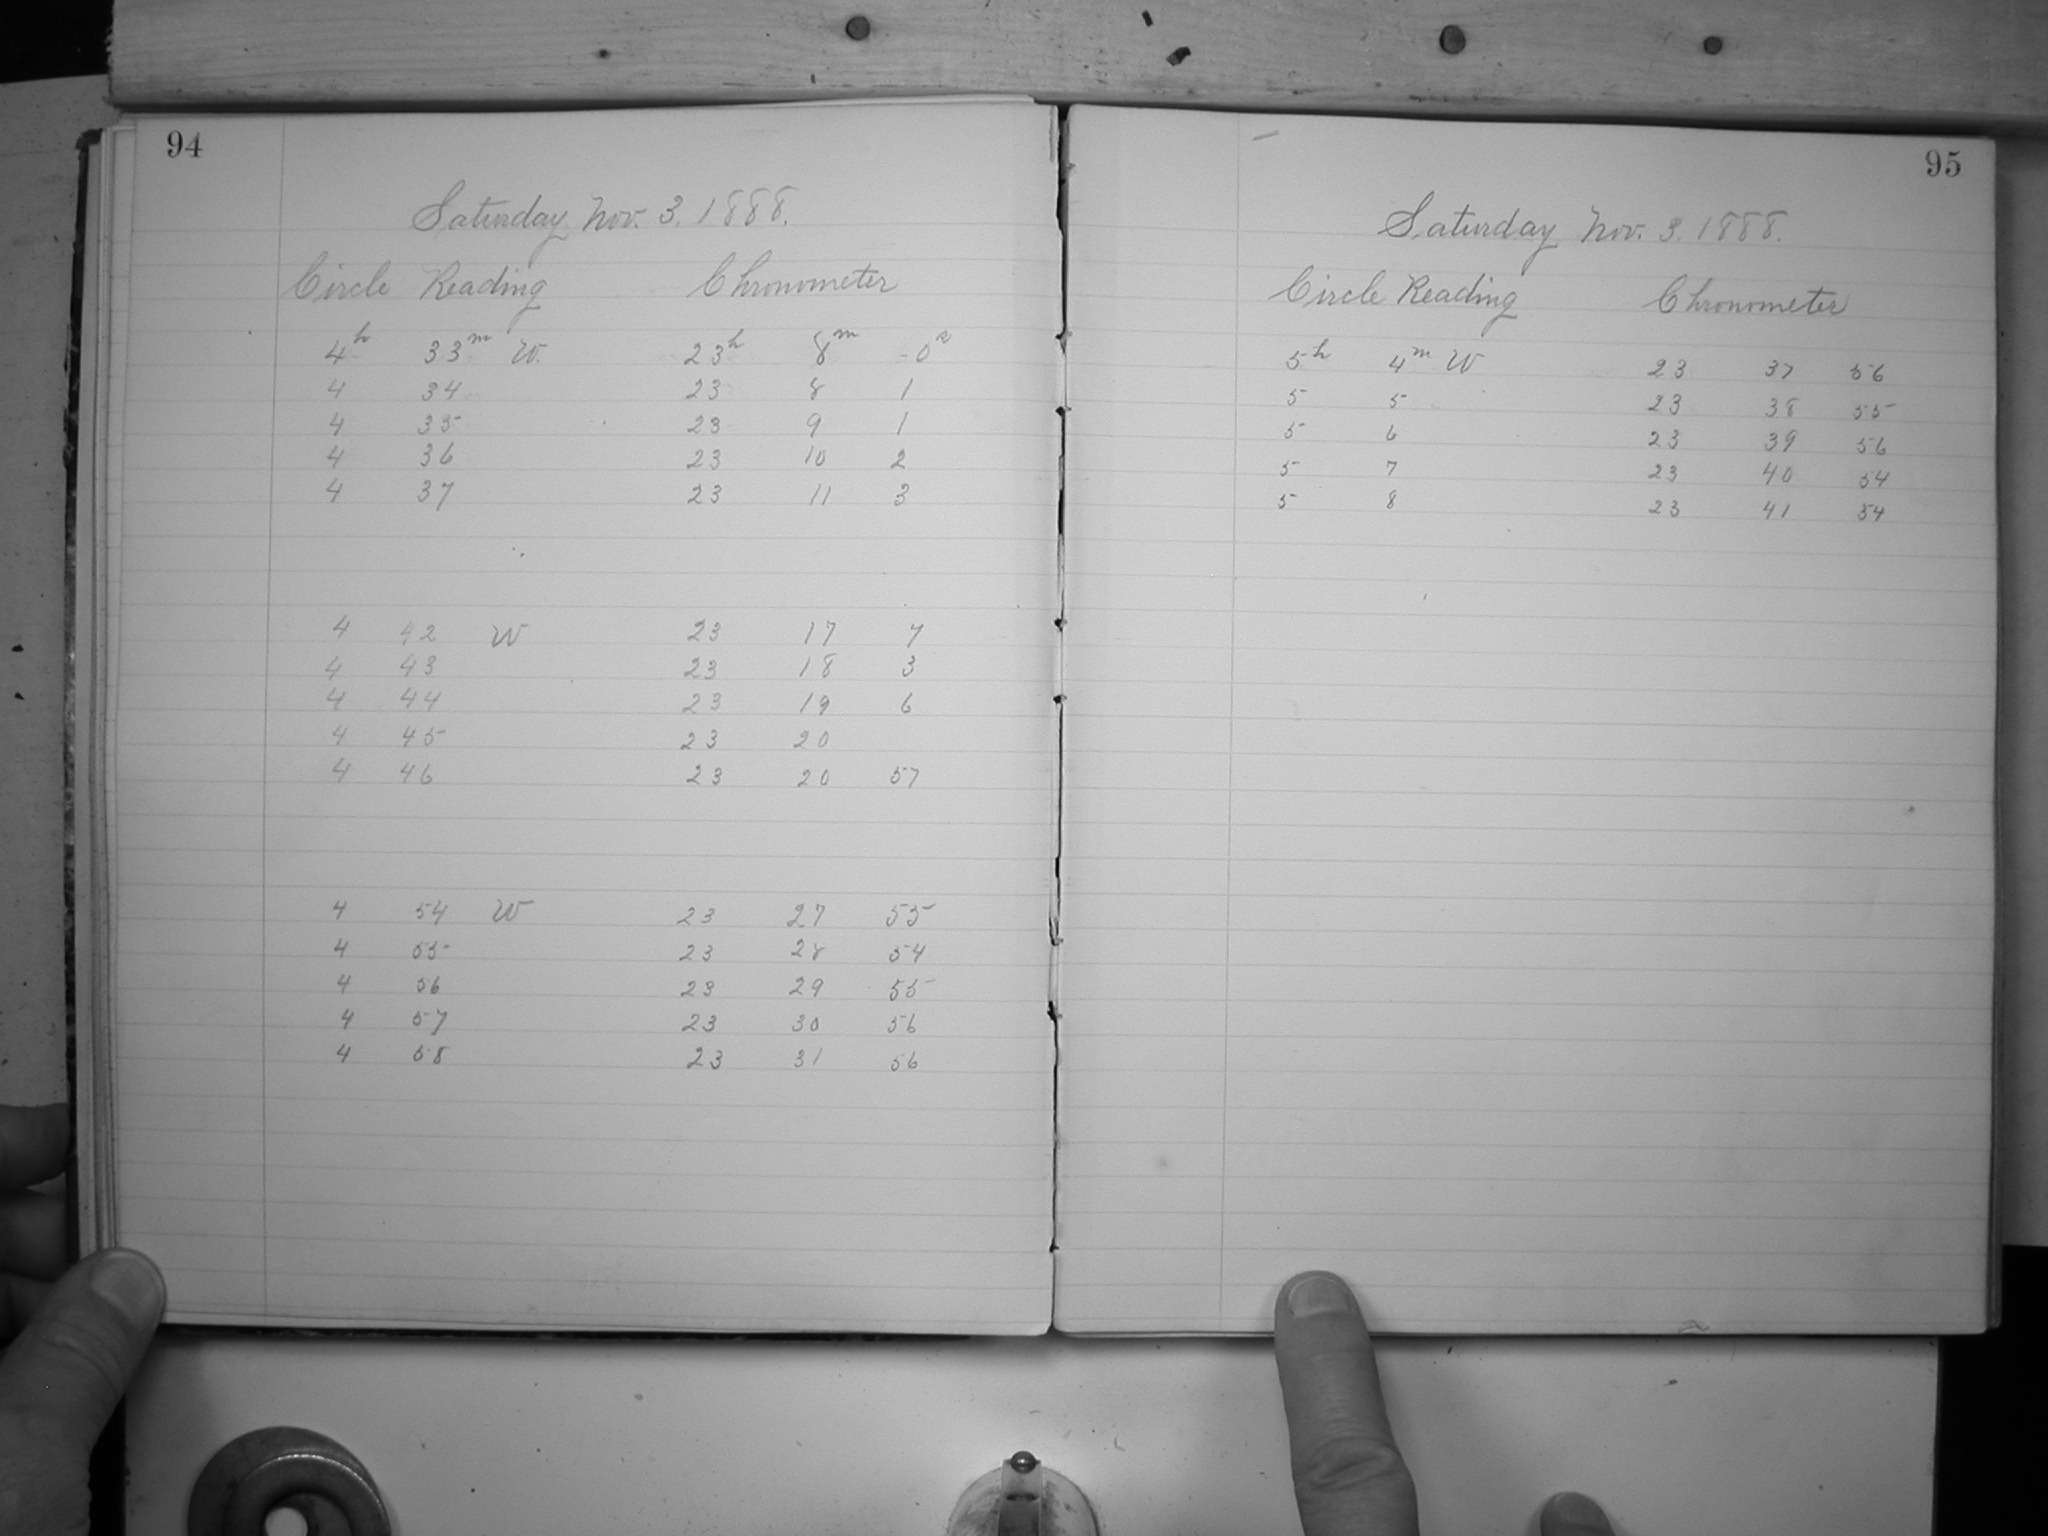 94
Saturday Nov. 3. 1888.
Circle Reading Chronometer
4h 33m W. 23h 8m 0s
4 34 23 8 1
4 35 23 9 1
4 36 23 10 2
4 37 23 11 3
4 42 W 23 17 7
4 43 23 18 3
4 44 23 19 6
4 45 23 20
4 46 23 20 57
4 54 W 23 27 55
4 55 23 28 54
4 56 23 29 55
4 57 23 30 56
4 58 23 31 56
95
Saturday Nov. 3. 1888.
Circle Reading Chronometer
5h 4m W 23 37 56
5 5 23 38 55
5 6 23 39 56
5 7 23 40 54
5 8 23 41 54